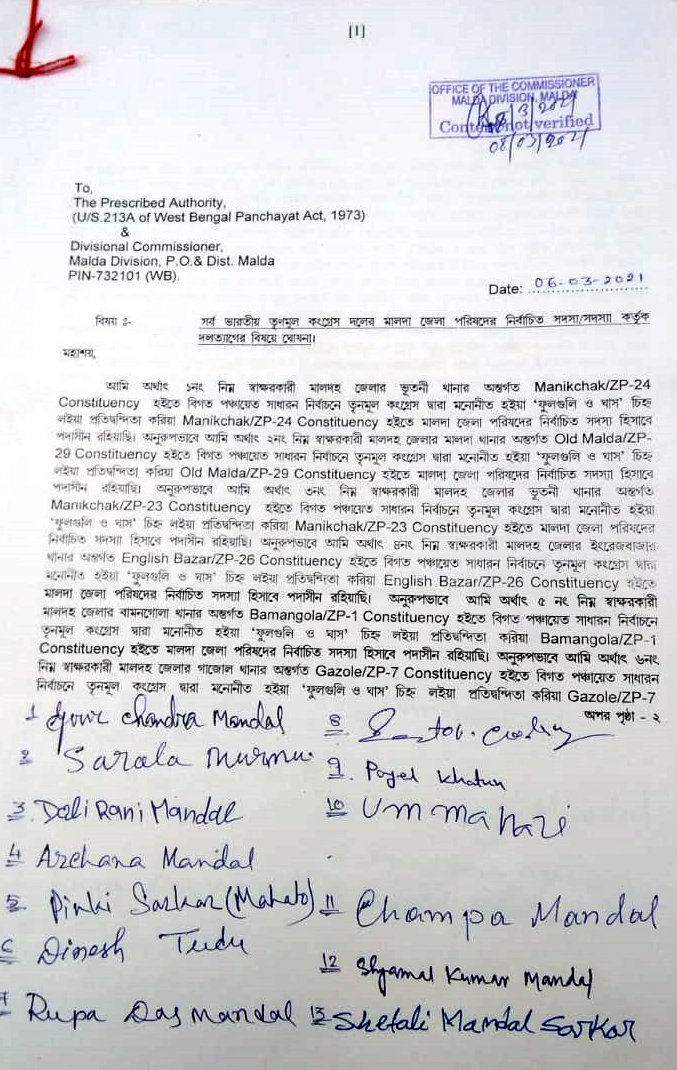 [1]
OFFICE OF THE COMMISSIONER
MALDA DIVISION, MALDA
8/3/2021
Content not verified
08/03/2021
To,
The Prescribed Authority,
(U/S.213A of West Bengal Panchayat Act, 1973)
&
Divisional Commissioner,
Malda Division, P.O.& Dist. Malda
PIN-732101 (WB).
Date: 06-03-2021
বিষয় ঃ- সর্ব ভারতীয় তৃণমূল কংগ্রেস দলের মালদা জেলা পরিষদের নির্বাচিত সদস্য/সদস্যা কর্তৃক
দলত্যাগের বিষয়ে ঘোষনা।
মহাশয়,
আমি অর্থাৎ ১নং নিম্ন স্বাক্ষরকারী মালদহ জেলার ভূতনী থানার অন্তর্গত Manikchak/ZP-24
Constituency হইতে বিগত পঞ্চায়েত সাধারন নির্বাচনে তৃনমূল কংগ্রেস দ্বারা মনোনীত হইয়া ‘ফুলগুলি ও ঘাস’ চিহ্ন
লইয়া প্রতিদ্বন্দিতা করিয়া Manikchak/ZP-24 Constituency হইতে মালদা জেলা পরিষদের নির্বাচিত সদস্য হিসাবে
পদাসীন রহিয়াছি। অনুরূপভাবে আমি অর্থাৎ ২নং নিম্ন স্বাক্ষরকারী মালদহ জেলার মালদা থানার অন্তর্গত Old Malda/ZP-
29 Constituency হইতে বিগত পঞ্চায়েত সাধারন নির্বাচনে তৃনমূল কংগ্রেস দ্বারা মনোনীত হইয়া ‘ফুলগুলি ও ঘাস’ চিহ্ন
লইয়া প্রতিদ্বন্দিতা করিয়া Old Malda/ZP-29 Constituency হইতে মালদা জেলা পরিষদের নির্বাচিত সদস্য হিসাবে
পদাসীন রহিয়াছি। অনুরূপভাবে আমি অর্থাৎ ৩নং নিম্ন স্বাক্ষরকারী মালদহ জেলার ভূতনী থানার অন্তর্গত
Manikchak/ZP-23 Constituency হইতে বিগত পঞ্চায়েত সাধারন নির্বাচনে তৃনমূল কংগ্রেস দ্বারা মনোনীত হইয়া
‘ফুলগুলি ও ঘাস’ চিহ্ন লইয়া প্রতিদ্বন্দিতা করিয়া Manikchak/ZP-23 Constituency হইতে মালদা জেলা পরিষদের
নির্বাচিত সদস্য হিসাবে পদাসীন রহিয়াছি। অনুরূপভাবে আমি অর্থাৎ ৪নং নিম্ন স্বাক্ষরকারী মালদহ জেলার ইংরেজবাজার
থানার অন্তর্গত English Bazar/ZP-26 Constituency হইতে বিগত পঞ্চায়েত সাধারন নির্বাচনে তৃনমূল কংগ্রেস দ্বারা
মনোনীত হইয়া ‘ফুলগুলি ও ঘাস’ চিহ্ন লইয়া প্রতিদ্বন্দিতা করিয়া English Bazar/ZP-26 Constituency হইতে
মালদা জেলা পরিষদের নির্বাচিত সদস্য হিসাবে পদাসীন রহিয়াছি। অনুরূপভাবে আমি অর্থাৎ ৫ নং নিম্ন স্বাক্ষরকারী
মালদহ জেলার বামনগোলা থানার অন্তর্গত Bamangola/ZP-1 Constituency হইতে বিগত পঞ্চায়েত সাধারন নির্বাচনে
তৃনমূল কংগ্রেস দ্বারা মনোনীত হইয়া ‘ফুলগুলি ও ঘাস’ চিহ্ন লইয়া প্রতিদ্বন্দিতা করিয়া Bamangola/ZP-1
Constituency হইতে মালদা জেলা পরিষদের নির্বাচিত সদস্য হিসাবে পদাসীন রহিয়াছি। অনুরূপভাবে আমি অর্থাৎ ৬নং
নিম্ন স্বাক্ষরকারী মালদহ জেলার গাজোল থানার অন্তর্গত Gazole/ZP-7 Constituency হইতে বিগত পঞ্চায়েত সাধারন
নির্বাচনে তৃনমূল কংগ্রেস দ্বারা মনোনীত হইয়া ‘ফুলগুলি ও ঘাস’ চিহ্ন লইয়া প্রতিদ্বন্দিতা করিয়া Gazole/ZP-7
অপর পৃষ্ঠা - ২
1 Gour Chandra Mandal
2 Sarala Murmu
3. Doli Rani Mandal
4 Archana Mandal
5. Pinki Sarkar (Mahato)
6 Dinesh Tudu
7 Rupa Das Mandal
8.
9. Payel Khatun
10 Ummahani
11 Champa Mandal
12 Shyamal Kumar Mandal
13 Shefali Mandal Sarkar